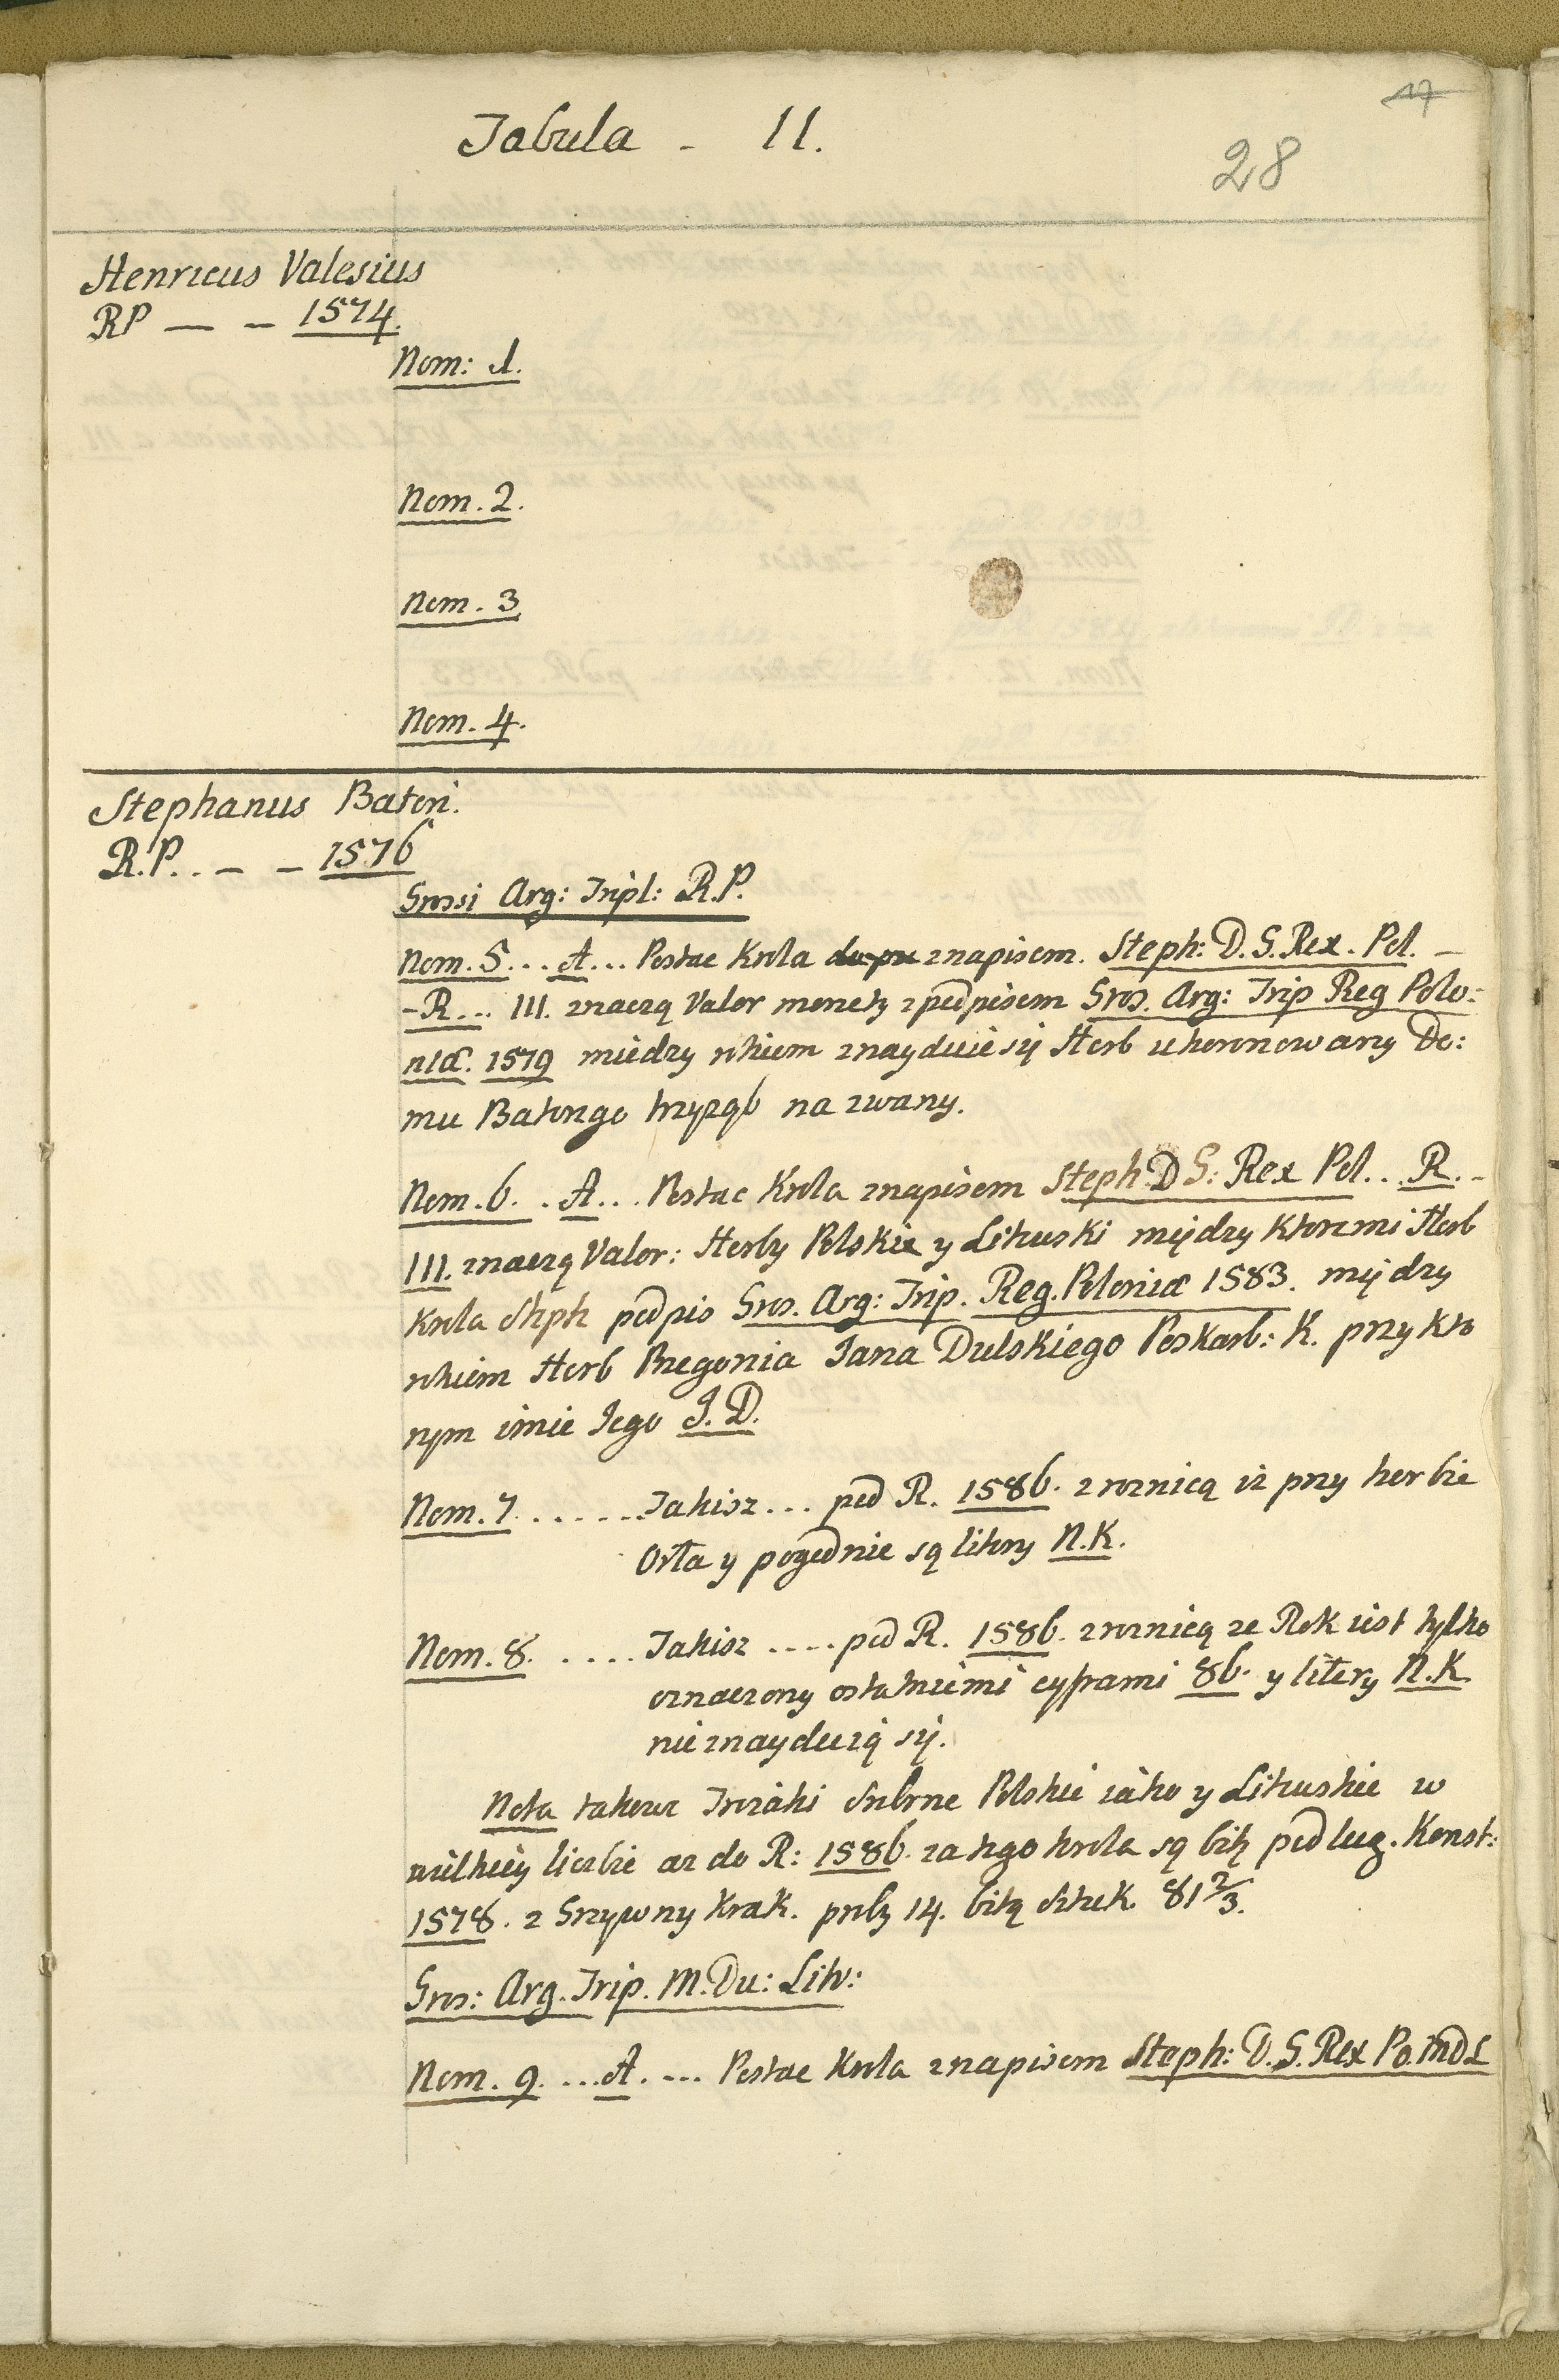 17
Tabula - II.
28
Henricus Valesius
RP — – 1574.
Nom: 1.
Nom. 2.
Nom. 3
Nom. 4.
Stephanus Batori.
R.P. . – – 1576
Grossi Arg: Tripl: R.P.
Nom. 5 . . . A . . . Postac Krola znapisem. Steph: D. G. Rex. Pol. –
-R... III. znaczą Valor monety zpodpisem Gros. Arg: Trip Reg Polo:
niæ. 1579 miedzy ktorem znayduie się Herb ukoronowany Do:
mu Batorego trzyząb nazwany.
Nom. 6 . . A . . . Postac Krola znapisem Steph: D G: Rex Pol. . . R. -
III. znaczą Valor: Herby Polskie y Litewski między ktoremi Herb
Krola Steph podpis Gros. Arg: Trip. Reg. Poloniæ 1583. między
ktorem Herb Przegonia Jana Dulskiego Poskarb: K. przy kto
rym imie Jego J. D.
Nom. 7 . . . . . . Takisz . . . pod R. 1586. zroznicą iz przy herbie
Orła y pogodnie są litery N.K.
Nom. 8. . . . . Takisz . . . . pod R. 1586. zroznicą ze Rok iest tylko
oznaczony ostatniemi cyframi 86. y litery N.K.
nieznayduią się.
Nota takowe Trozaki srebrne Polskie iako y Litewskie w
wielkiey liczbie az do R: 1586. za tego krola są bite podlug. Konst:
1578. z Grzywny Krak. proby 14. bitą sztuk. 81 2/3.
Gros: Arg. Trip. M. Du: Litv:
Nom. 9. ... A. ... Postac Krola znapisem Steph: D. G. Rex Po. MDL